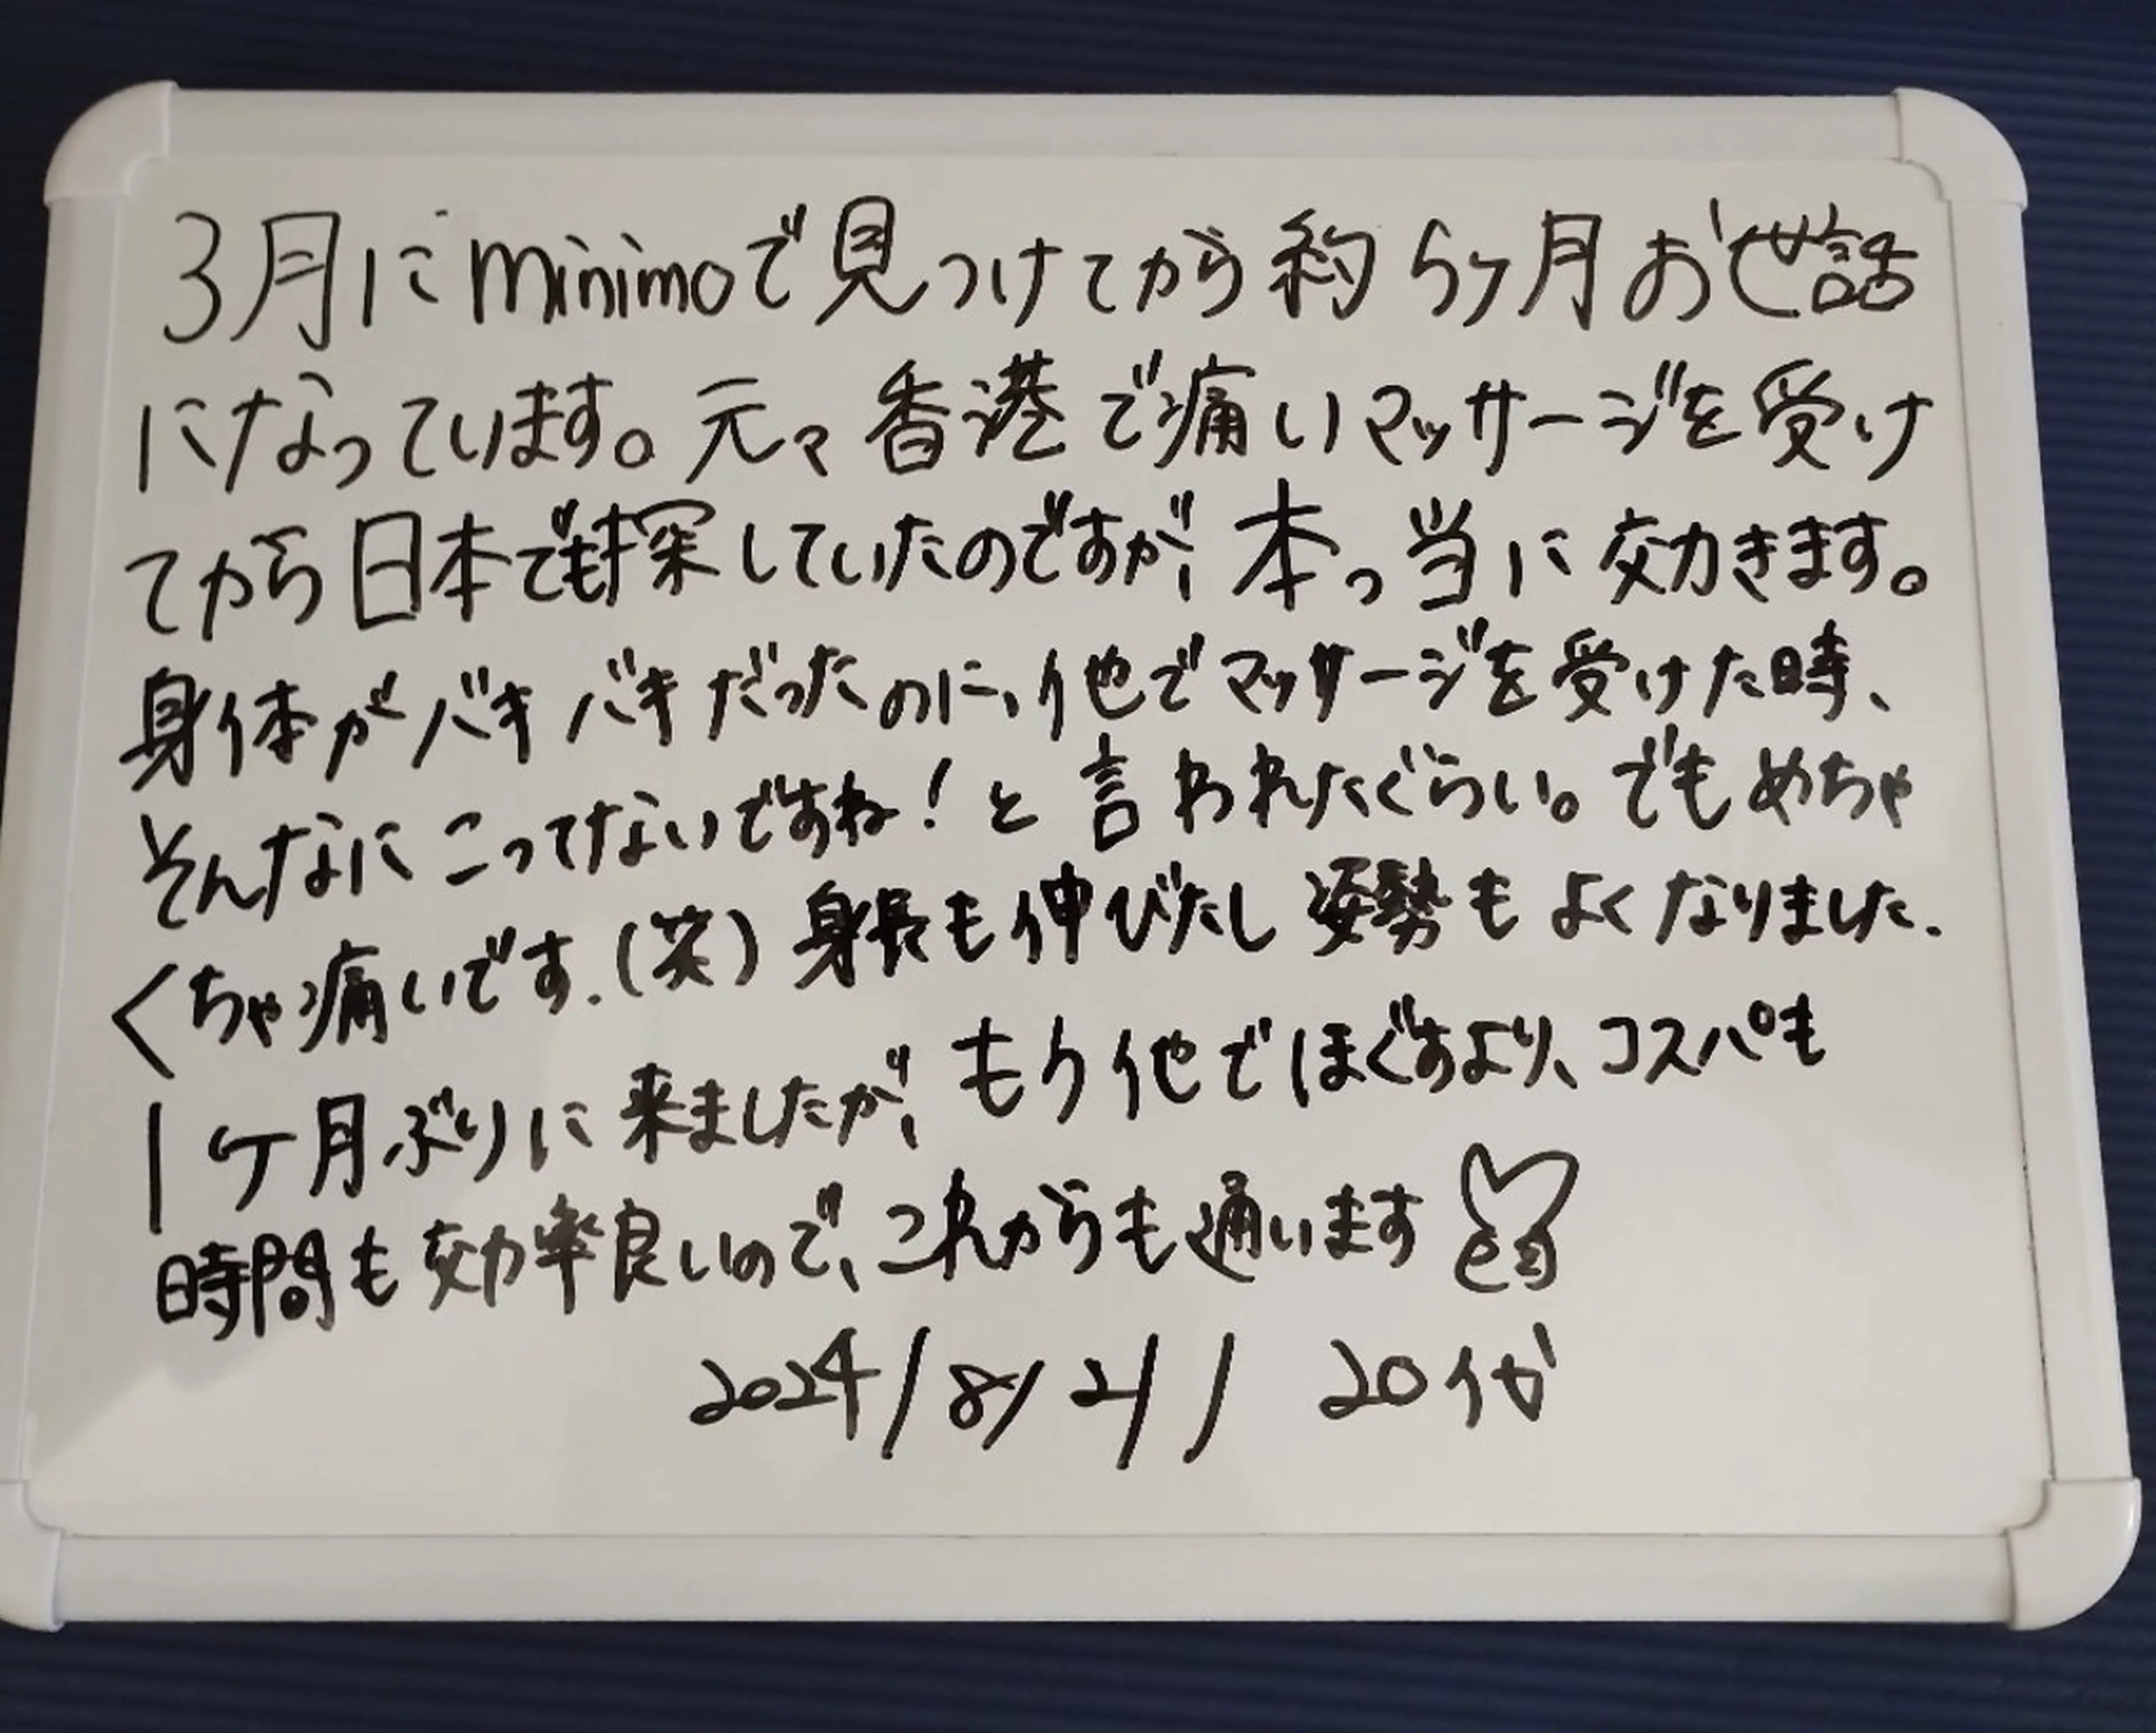 3月にminimoで見つけてから約5ヶ月お世話
になっています。元々香港で痛いマッサージを受け
てから日本でも探していたのですが、本っ当に効きます。
身体がバキバキだったのに、他でマッサージを受けた時、
そんなにこってないですね!と言われたぐらい。でもめちゃ
くちゃ痛いです.(笑)身長も伸びたし姿勢もよくなりました.
1ヶ月ぶりに来ましたが、もう他でほぐすより、コスパも
時間も効率良いので、これからも通います
2024/8/21) 20代